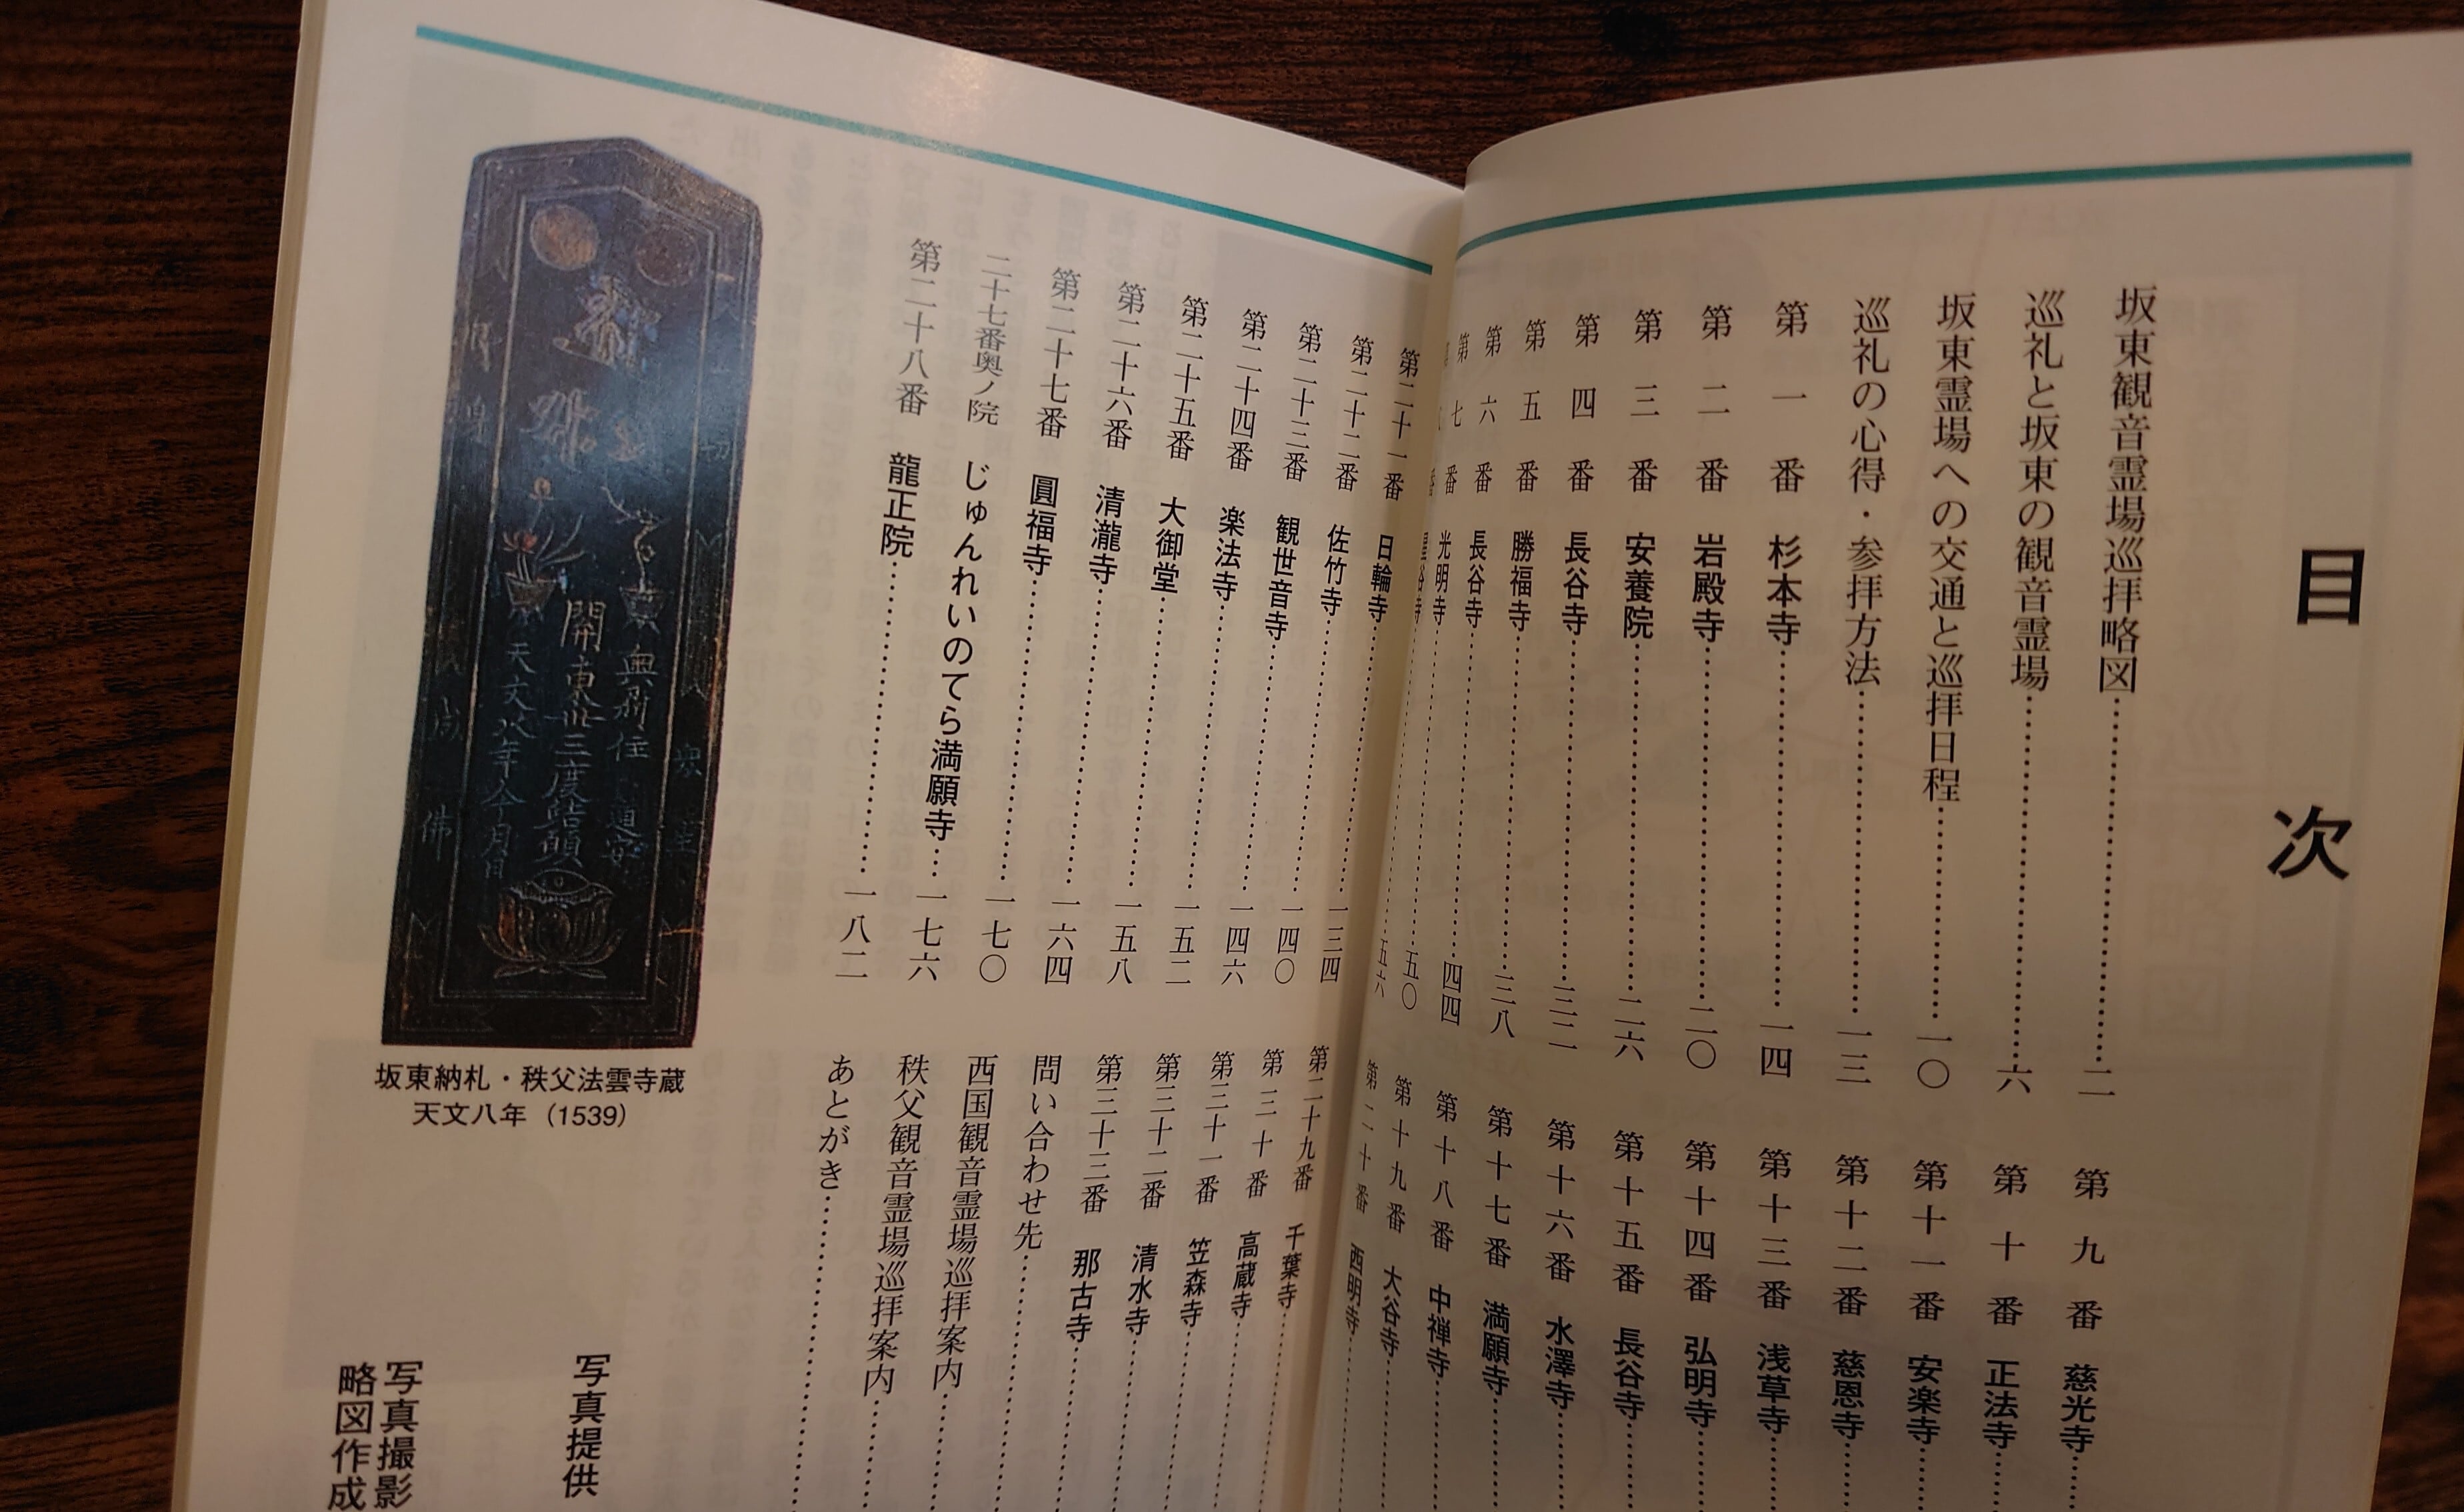 目次
坂東観音霊場巡拝略図 二
巡礼と坂東の観音霊場 六
坂東霊場への交通と巡拝日程 一〇
巡礼の心得・参拝方法 一三
第一番 杉本寺 一四
第二番 岩殿寺 二〇
第三番 安養院 二六
第四番 長谷寺 三二
第五番 勝福寺 三八
第六番 長谷寺 四四
第七番 光明寺 五〇
番 星谷寺 五六
第九番 慈光寺
第十番 正法寺
第十一番 安楽寺
第十二番 慈恩寺
第十三番 浅草寺
第十四番 弘明寺
第十五番 長谷寺
第十六番 水澤寺
第十七番 満願寺
第十八番 中禅寺
第十九番 大谷寺
第二十番 西明寺
第二十一番 日輪寺 一三四
第二十二番 佐竹寺 一四〇
第二十三番 観世音寺 一四六
第二十四番 楽法寺 一五二
第二十五番 大御堂 一五八
第二十六番 清瀧寺 一六四
第二十七番 圓福寺 一七〇
二十七番奥ノ院 じゅんれいのてら満願寺 一七六
第二十八番 龍正院 一八二
第二十九番 千葉寺
第三十番 高蔵寺
第三十一番 笠森寺
第三十二番 清水寺
第三十三番 那古寺
問い合わせ先
西国観音霊場巡拝案内
秩父観音霊場巡拝案内
あとがき
開東卅三度皆頭
天文八年今月日
佛
坂東納札・秩父法雲寺蔵
天文八年（1539）
写真提供
写真撮影
略図作成